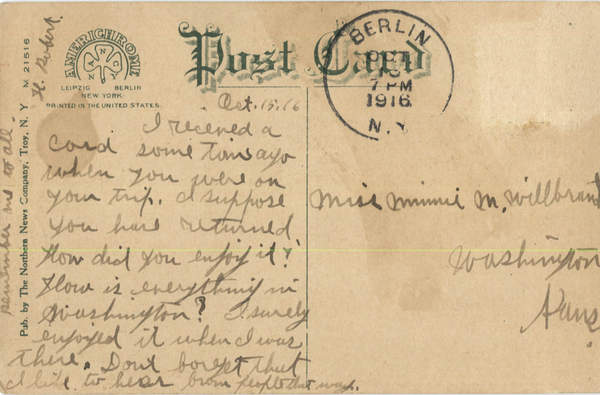 AMERICHROME
LEIPZIG BERLIN
NEW YORK
PRINTED IN THE UNITED STATES.
Post Card
BERLIN
7 PM
1916
N.Y.
Pub. by The Northern News Company, Troy, N. Y. M 21516
Oct. 15. 16
I received a
card some time ago
when you were on
your trip. I suppose
you have returned
How did you enjoy it?
How is everything in
Washington? I surely
enjoyed it when I was
there. Dont forget that
I like to hear from people that way.
remember me to all.
H. Robert
Miss Minnie M. Willbrand
Washington
Kans